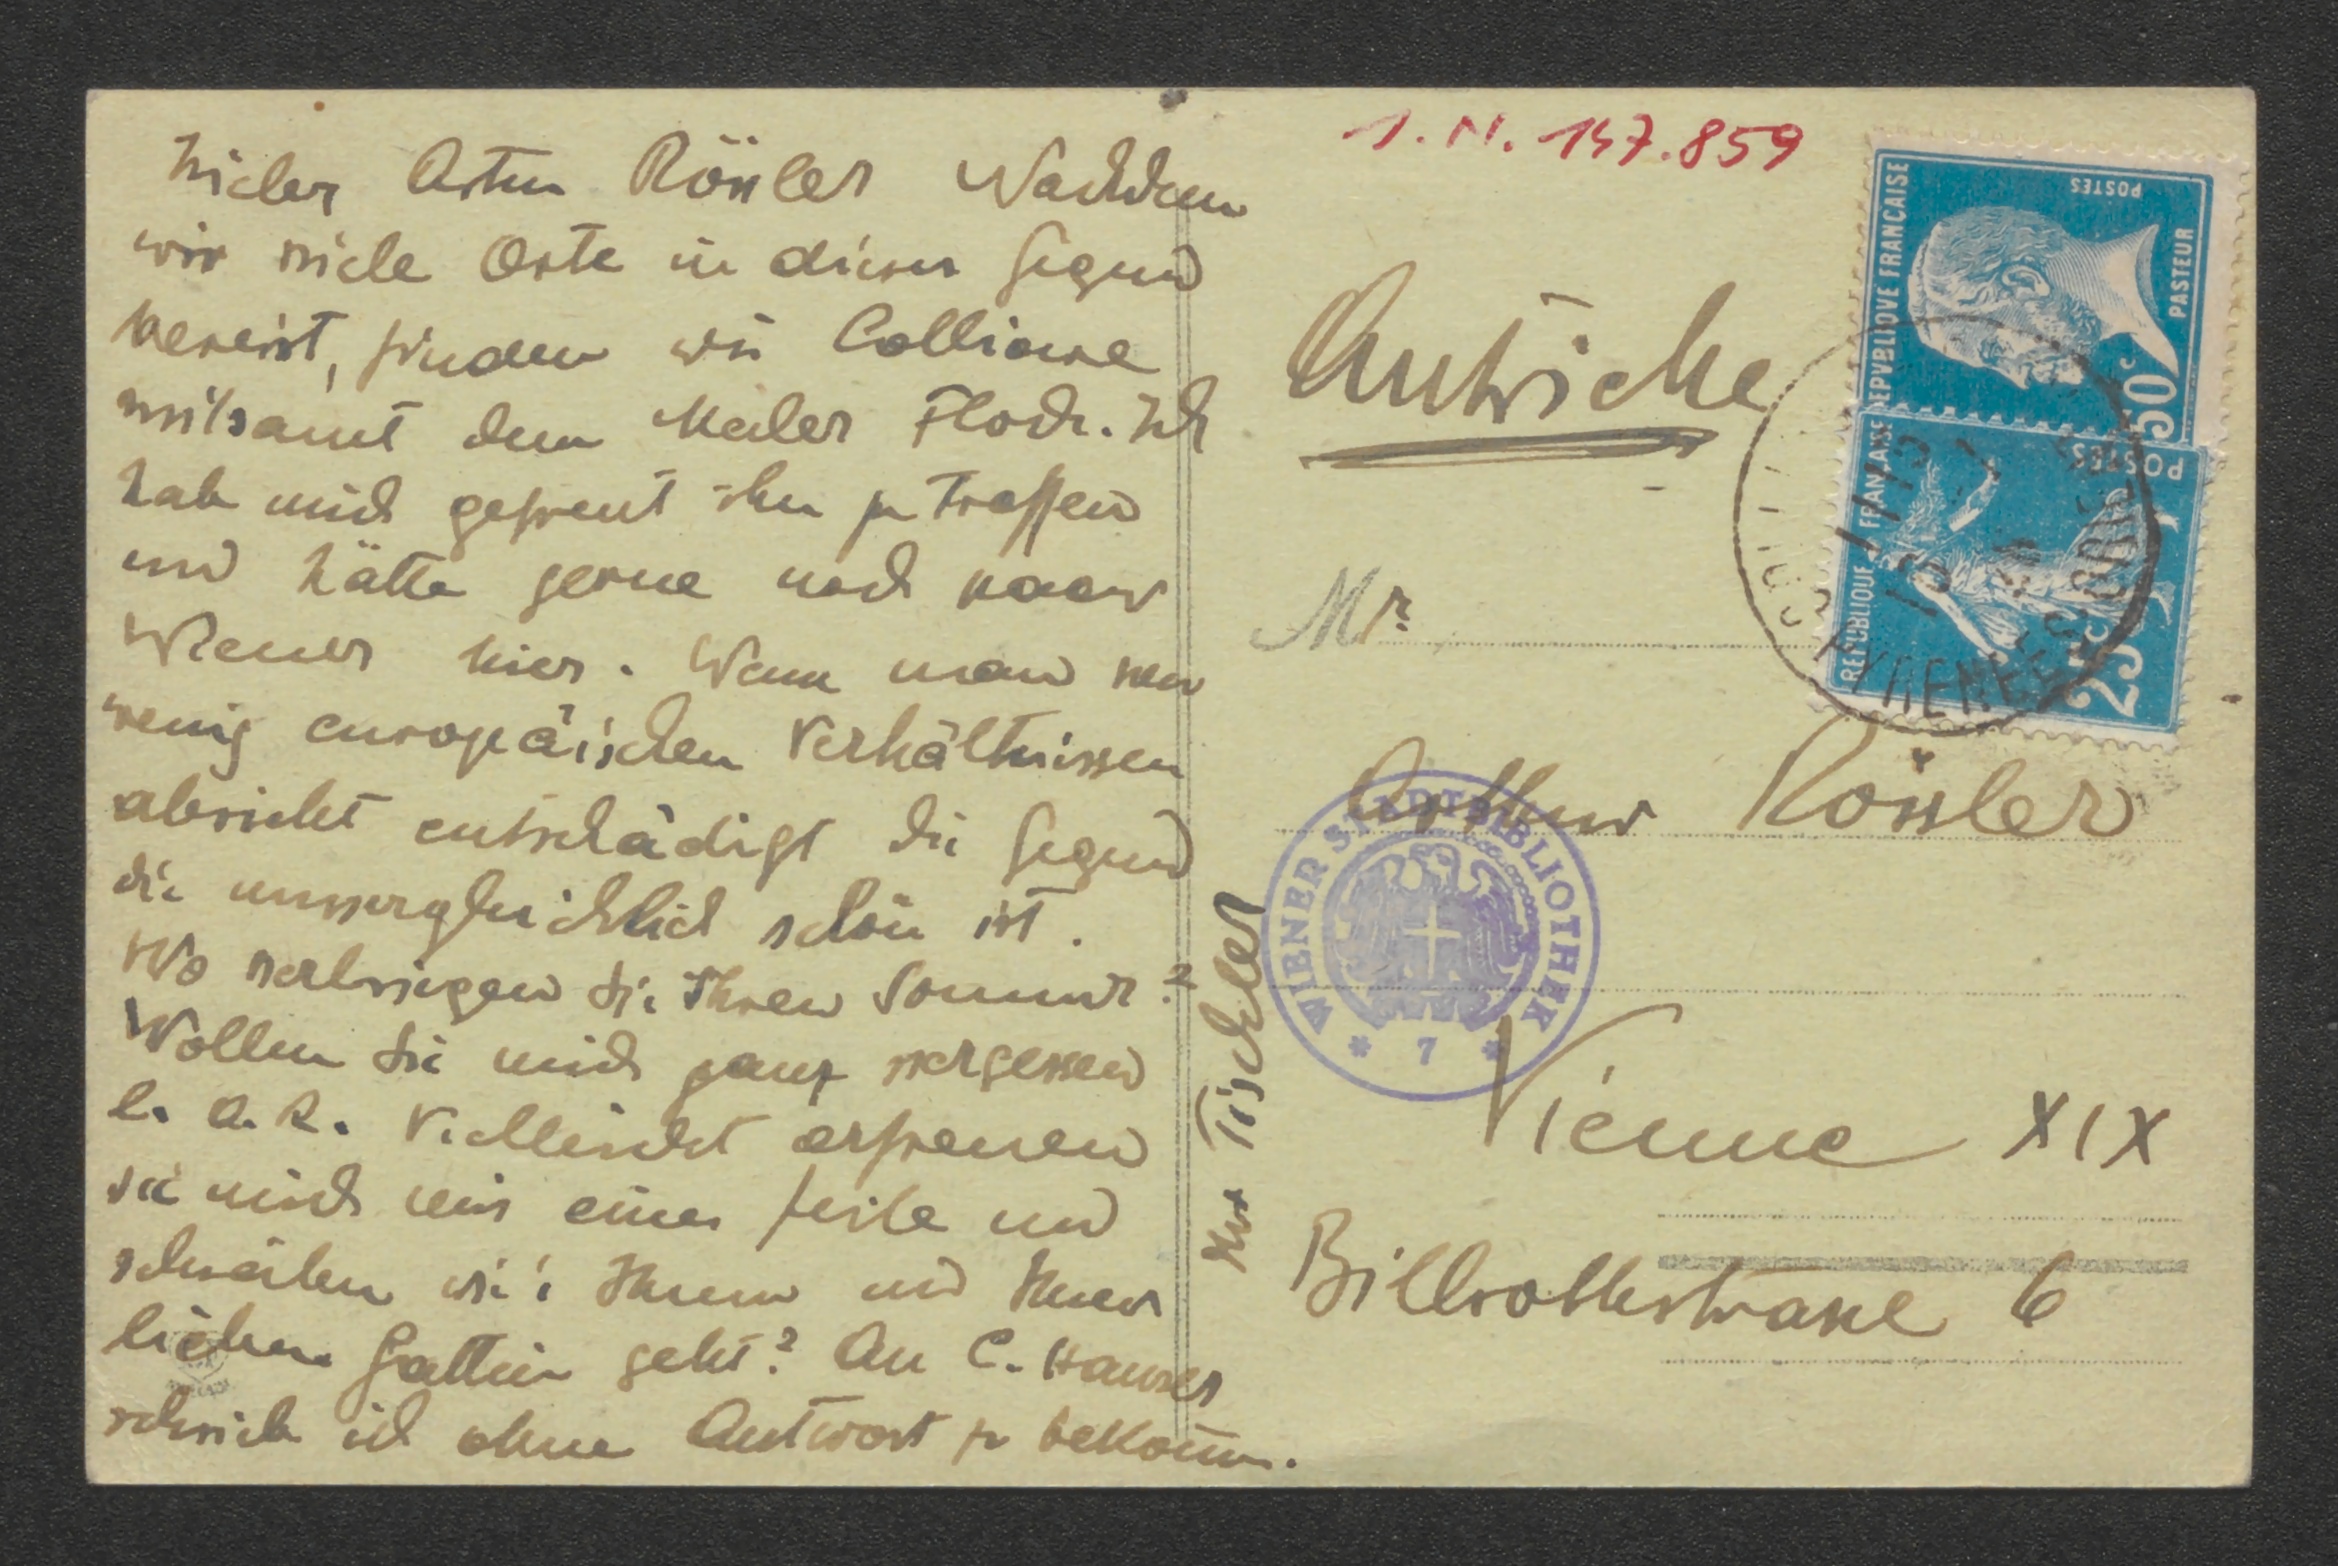 Lieber Artur Rössler Nachdem
wir viele Orte in dieser Gegend
bereist, finden wir Collioure
mitsamt dem Maler Floch. Ich
hab mich gefreut ihn zu treffen
und hätte gerne noch paar
Wiener hier. Wenn man von
wenig europäischen Verhältnissen
absieht entschädigt die Gegend
die unvergleichlich schön ist.
Wo verbringen Sie Ihren Sommer?
Wollen Sie mich ganz vergessen
l. A. R. Vielleicht erfreuen
sie mich mit einer Zeile und
schreiben wie's Ihnen und Ihrer
lieben Gattin geht? An C. Hauser
schrieb ich ohne Antwort zu bekomm.
Ihr Tischler
1. N. 147.859
Autriche
Mr.
Arthur Rössler
Vienne XIX
Billrothstrasse 6
REPUBLIQUE FRANCAISE
POSTES
PASTEUR
50c
REPUBLIQUE FRANÇAISE
POSTES
25c
PYRENEES
WIENER STADTBIBLIOTHEK
* 7 *